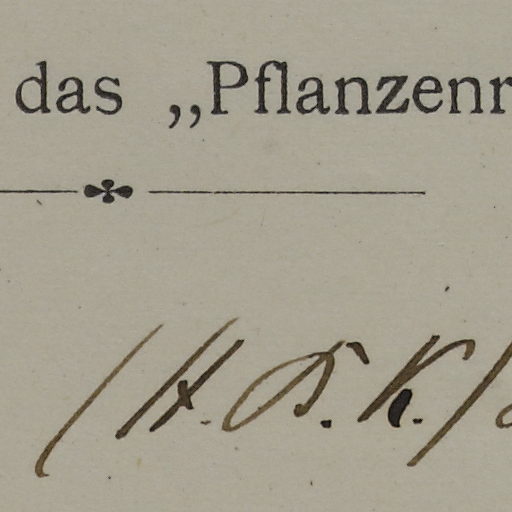 das „Pflanzenr
(H.B.K.)